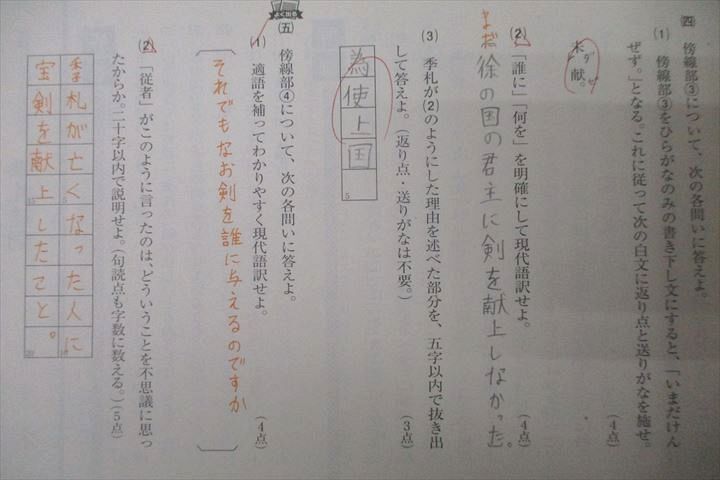 四 傍線部③について、次の各問いに答えよ。
(1) 傍線部③をひらがなのみの書き下し文にすると、「いまだけん
ぜず。」となる。これに従って次の白文に返り点と送りがなを施せ。
(4点)
未ダ献ゼ。
(2) 「誰に」「何を」を明確にして現代語訳せよ。
(4点)
まだ徐の国の君主に剣を献上しなかった。
(3) 季札が(2)のようにした理由を述べた部分を、五字以内で抜き出
して答えよ。(返り点・送りがなは不要。)
(3点)
為使上国
5
よく出る
五 傍線部④について、次の各問いに答えよ。
(1) 適語を補ってわかりやすく現代語訳せよ。
(4点)
それでもなお剣を誰に与えるのですか
(2) 「従者」がこのように言ったのは、どういうことを不思議に思っ
たからか。二十字以内で説明せよ。(句読点も字数に数える。)(5点)
季札が亡くなった人に
宝剣を献上したこと。